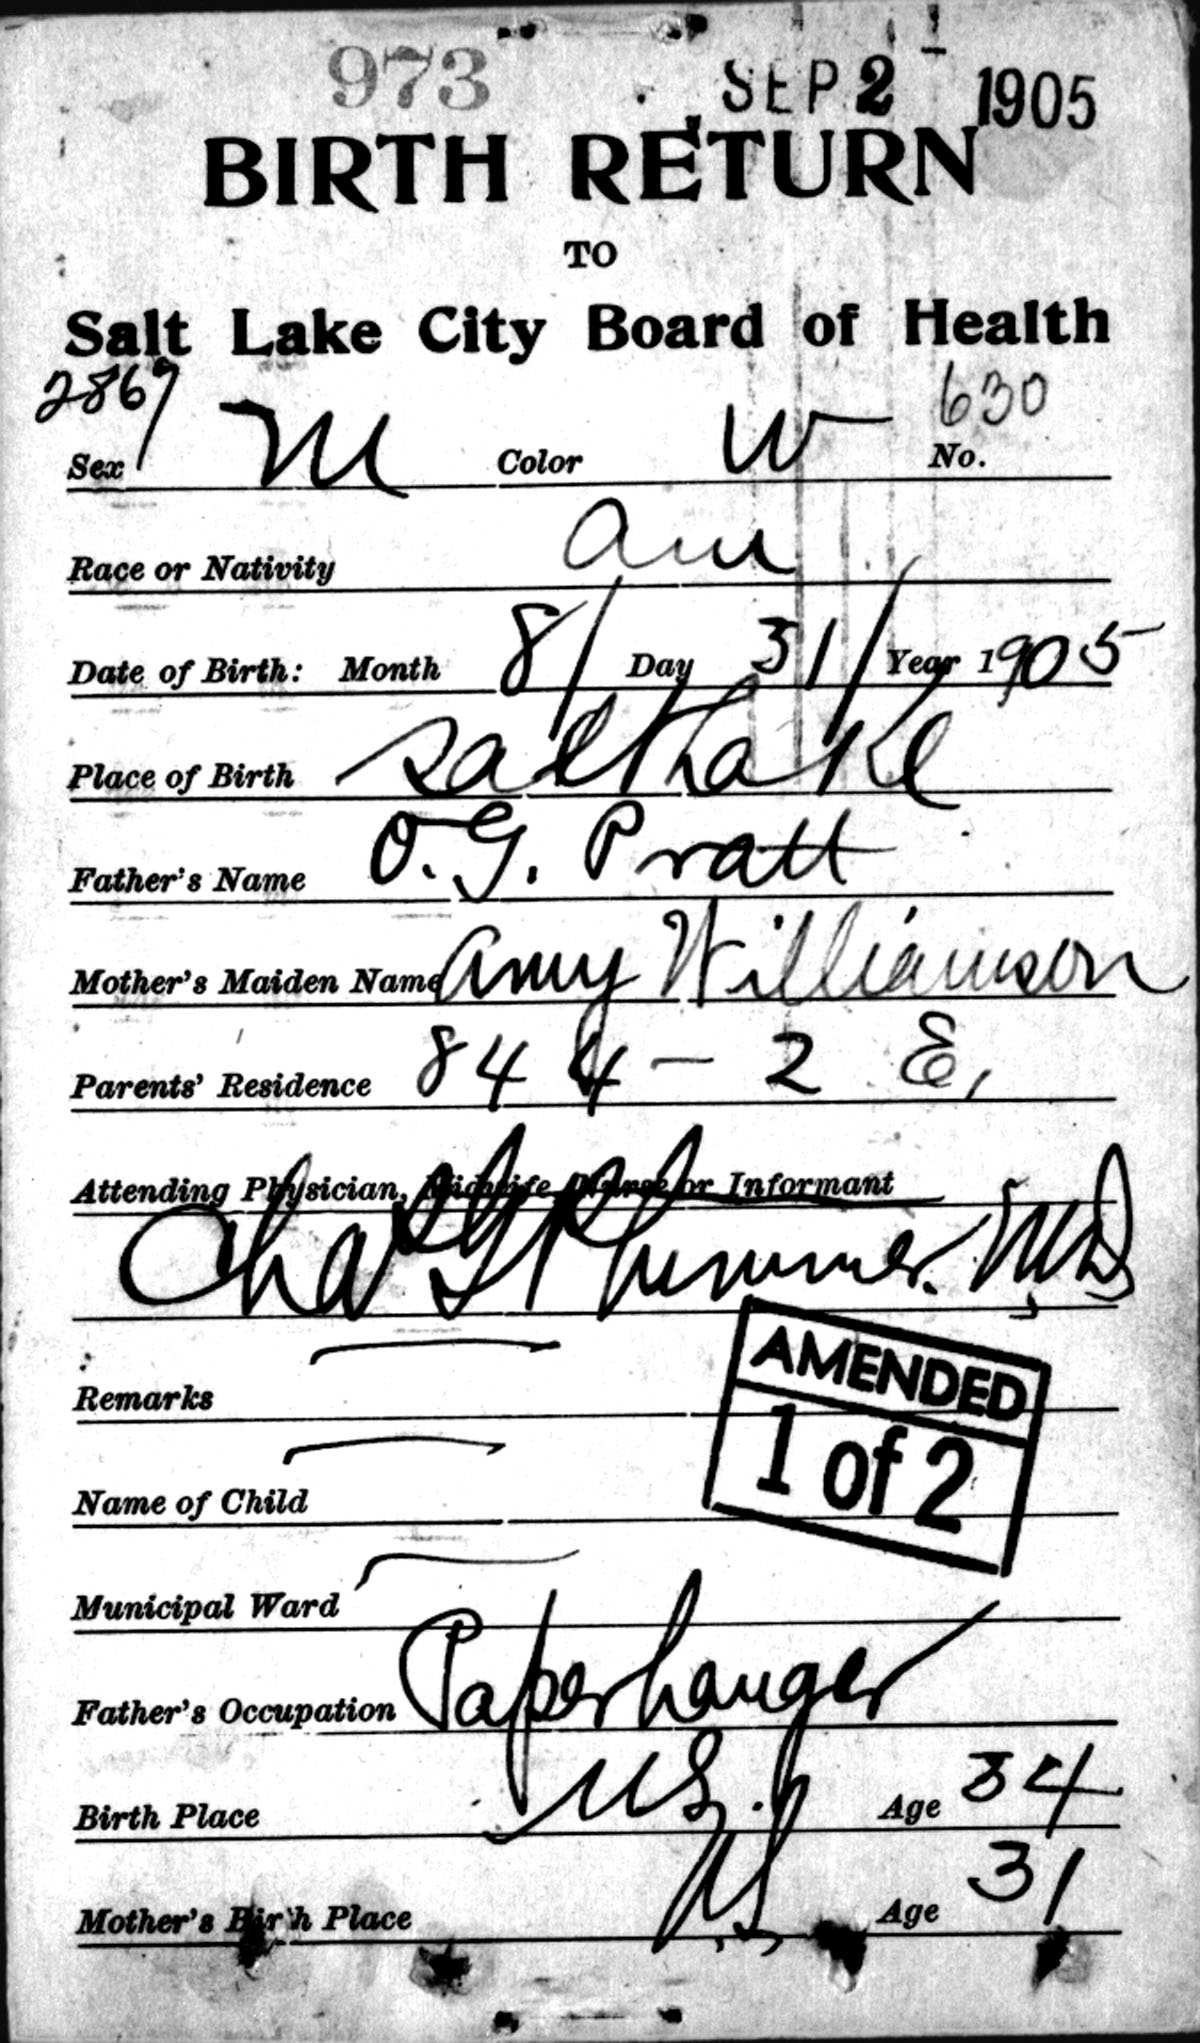 973 SEP 2 1905
BIRTH RETURN
TO
Salt Lake City Board of Health
2867 630
Sex M Color W No.
Race or Nativity Am
Date of Birth: Month 8/ Day 31/ Year 1905
Place of Birth Salt Lake
Father's Name O. G. Pratt
Mother's Maiden Name Amy Williamson
Parents' Residence 844 - 2 E,
Attending Physician, Midwife, Nurse or Informant
Chas G Plummer. M.D.
Remarks
AMENDED
1 of 2
Name of Child
Municipal Ward
Father's Occupation Paperhanger
Birth Place U.S. Age 34
Mother's Birth Place U.S. Age 31